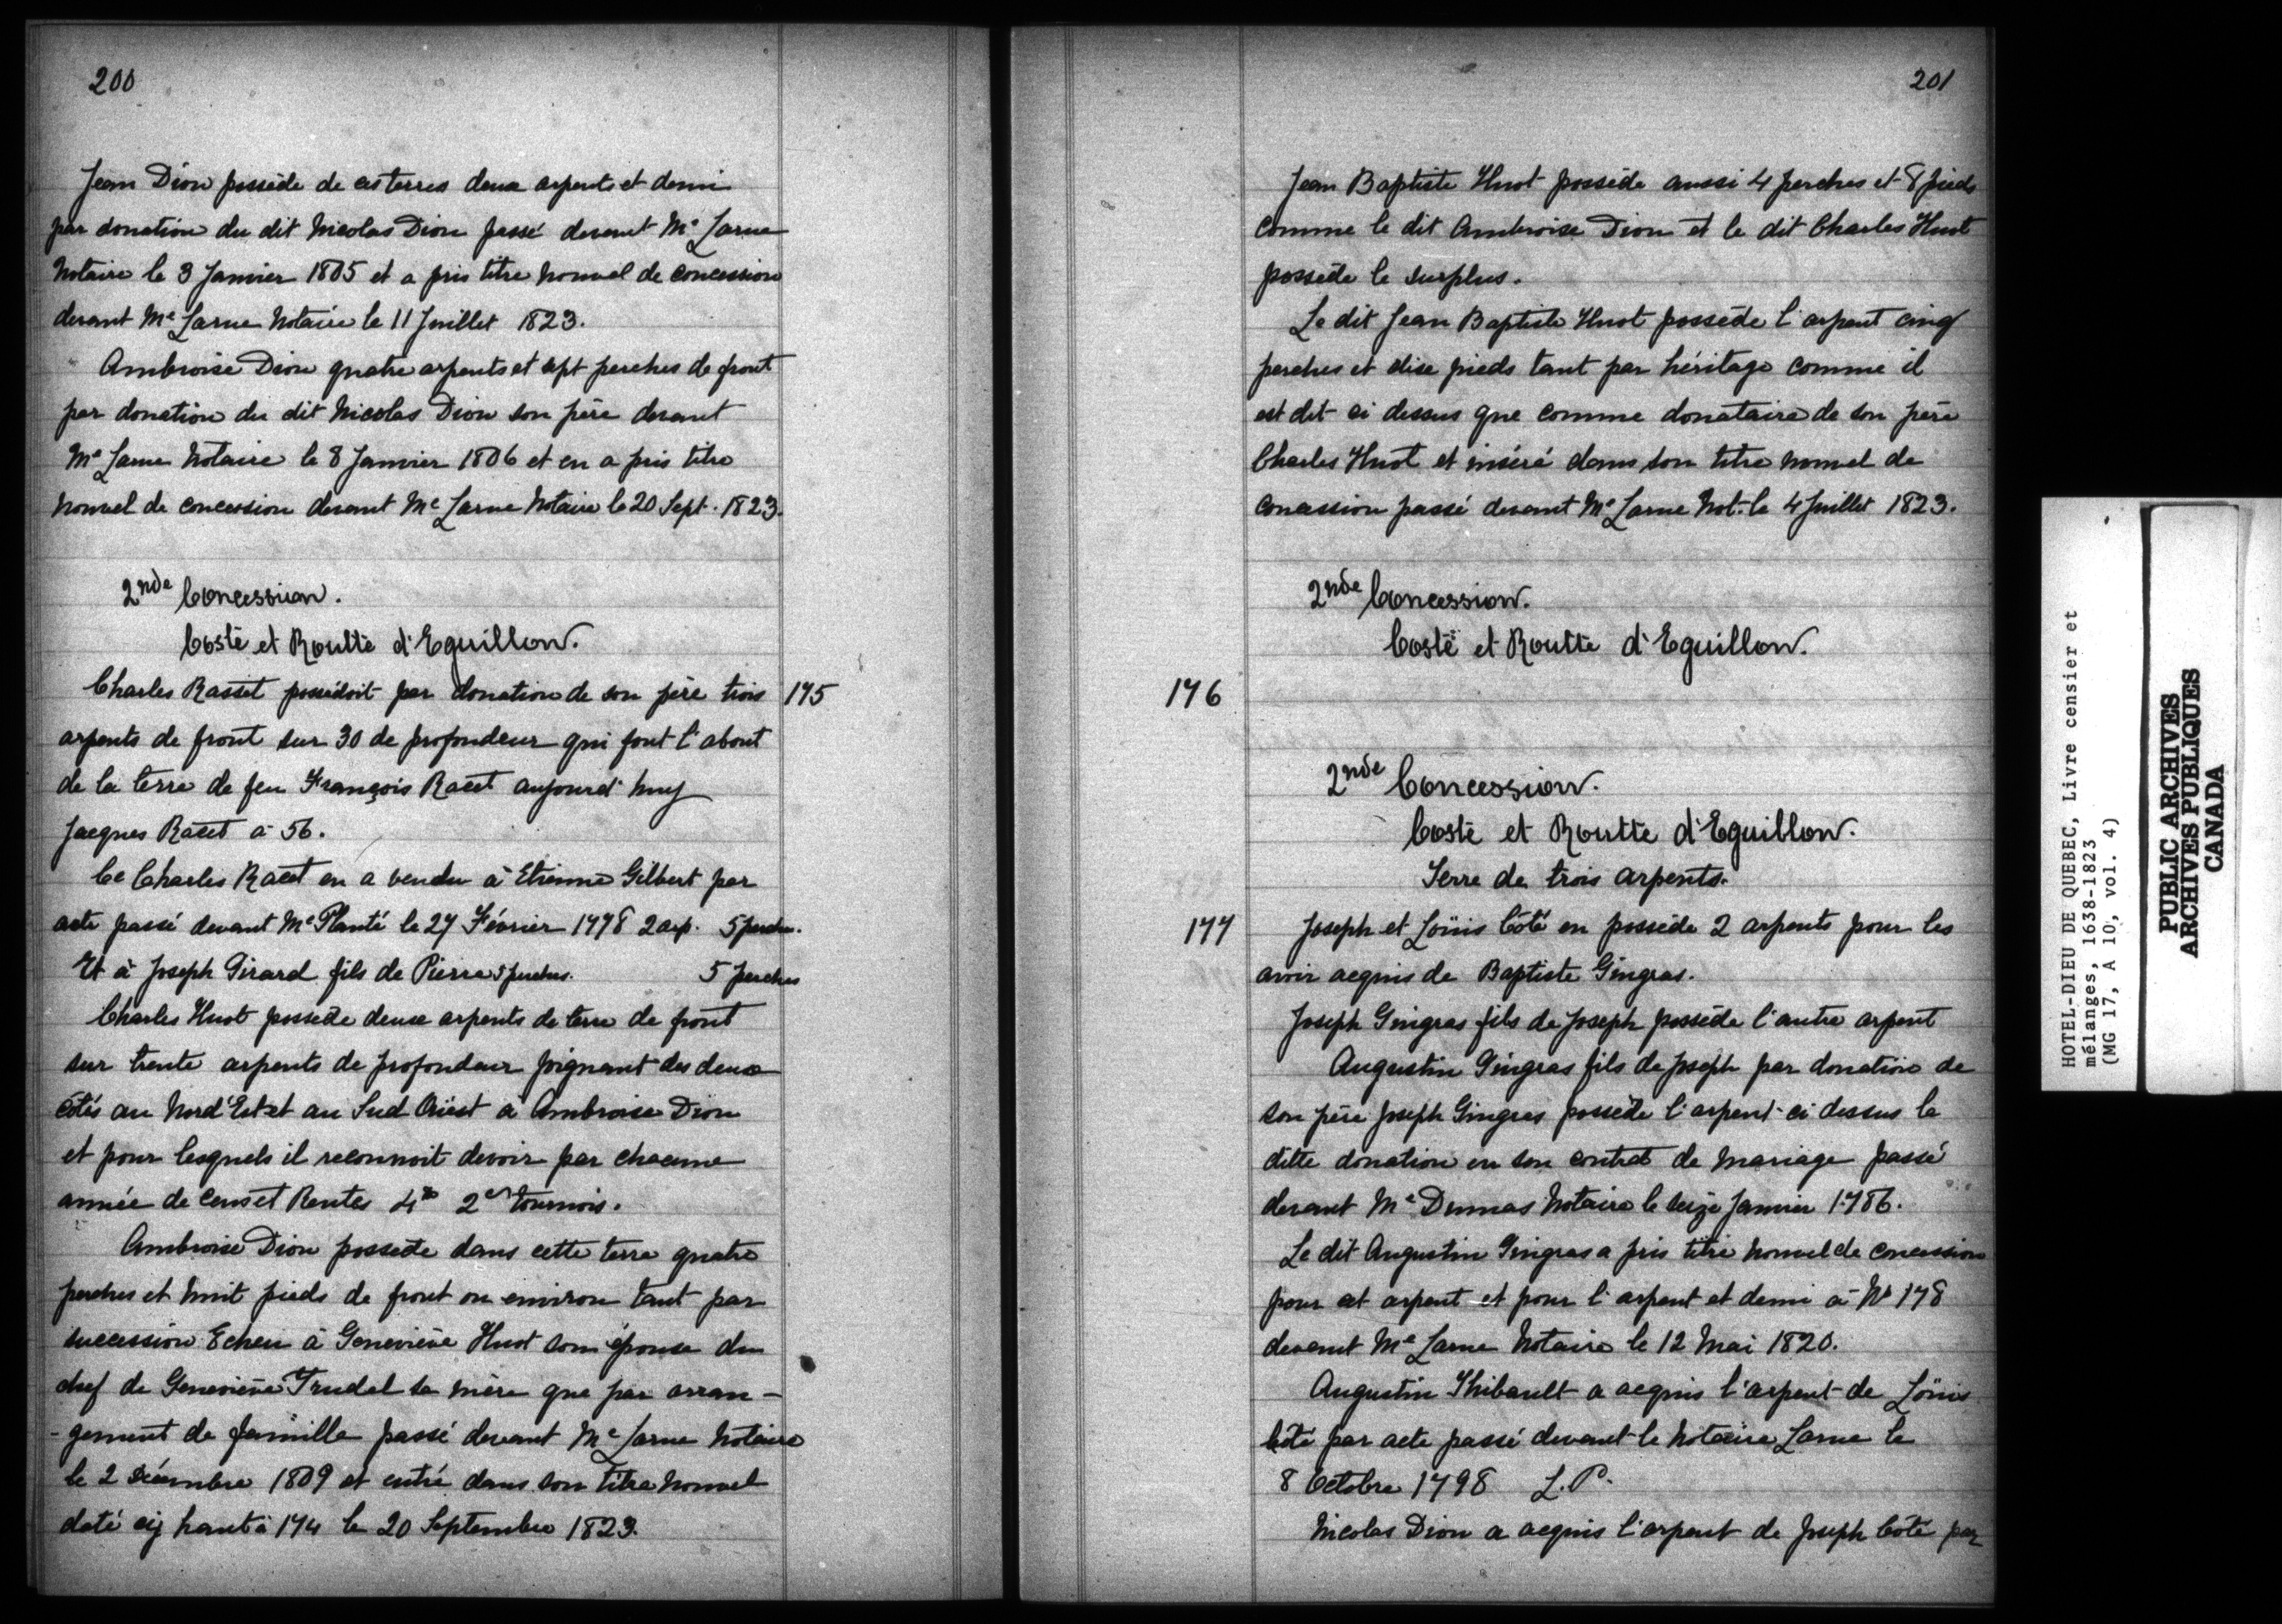 200
Jean Dion possède de ces terres deux arpents et demi
par donation du dit Nicolas Dion passé devant Me Larue
Notaire le 3 Janvier 1805 et a pris titre nouvel de concession
devant Me Larue Notaire le 11 Juillet 1823.
Ambroise Dion quatre arpents et sept perches de front
par donation du dit Nicolas Dion son père devant
Me Larue Notaire le 8 Janvier 1806 et en a pris titre
nouvel de concession devant Me Larue Notaire le 20 Sept. 1823.
2nde Concession.
Costé et Routte d'Eguillon.
Charles Rasset possédoit par donation de son père trois 175
arpents de front sur 30 de profondeur qui font l'about
de la terre de feu François Racet aujourd'huy
Jacques Racet à 56.
Ce Charles Racet en a vendu à Etienne Gilbert par
acte passé devant Me Planté le 27 Février 1778 2 arp. 5 perches.
Et à Joseph Girard fils de Pierre 5 perches. 5 perches
Charles Huot possède deux arpents de terre de front
sur trente arpents de profondeur joignant des deux
côtés au Nord'Est et au Sud Oüest à Ambroise Dion
et pour lesquels il reconnoit devoir par chacune
année de Cens et Rentes 4# 2s tournois.
Ambroise Dion possede dans cette terre quatre
perches et huit pieds de front ou environ tant par
succession Echeu à Geneviève Huot son épouse du
chef de Geneviève Trudel sa mère que par arran-
-gement de famille passé devant Me Larue Notaire
le 2 Décembre 1809 et entré dans son titre nouvel
daté cy haut à 174 le 20 Septembre 1823.
201
Jean Baptiste Huot possède aussi 4 perches et 8 pieds
comme le dit Ambroise Dion et le dit Charles Huot
possède le surplus.
Le dit Jean Baptiste Huot possède l'arpent cinq
perches et dixe pieds tant par héritage comme il
est dit ci dessus que comme donataire de son père
Charles Huot et inséré dans son titre nouvel de
concession passé devant Me Larue Not. le 4 Juillet 1823.
2nde Concession.
Costé et Routte d'Eguillon.
176
2nde Concession.
Costé et Routte d'Eguillon.
Terre de trois arpents.
177 Joseph et Loüis Côté en possède 2 arpents pour les
avoir acquis de Baptiste Gingras.
Joseph Gingras fils de Joseph possède l'autre arpent
Augustin Gingras fils de Joseph par donation de
son père Joseph Gingras possède l'arpent ci dessus la
ditte donation en son contrat de mariage passé
devant Me Dumas Notaire le seize Janvier 1786.
Le dit Augustin Gingras a pris titre nouvel de concession
pour cet arpent et pour l'arpent et demi à No 178
devant Me Larue Notaire le 12 Mai 1820.
Augustin Thibault a acquis l'arpent de Loüis
Côté par acte passé devant le Notaire Larue le
8 Octobre 1798 L.P.
Nicolas Dion a acquis l'arpent de Joseph Côté par
HOTEL-DIEU DE QUEBEC, Livre censier et
mélanges, 1638-1823
(MG 17, A 10, vol. 4)
PUBLIC ARCHIVES
ARCHIVES PUBLIQUES
CANADA